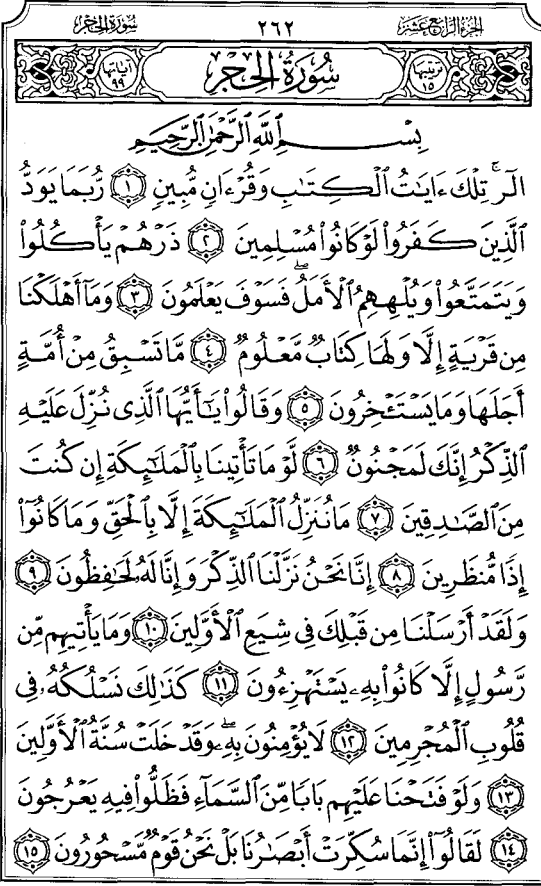 الجزء الرابع عشر ٢٦٢ سورة الحجر
ترتيبها ١٥ سُورَةُ الحِجْرِ آياتها ٩٩
بِسْمِ ٱللَّهِ ٱلرَّحْمَٰنِ ٱلرَّحِيمِ
الٓرۚ تِلْكَ ءَايَٰتُ ٱلْكِتَٰبِ وَقُرْءَانٍ مُّبِينٍ ١ رُّبَمَا يَوَدُّ
ٱلَّذِينَ كَفَرُوا۟ لَوْ كَانُوا۟ مُسْلِمِينَ ٢ ذَرْهُمْ يَأْكُلُوا۟
وَيَتَمَتَّعُوا۟ وَيُلْهِهِمُ ٱلْأَمَلُۖ فَسَوْفَ يَعْلَمُونَ ٣ وَمَآ أَهْلَكْنَا
مِن قَرْيَةٍ إِلَّا وَلَهَا كِتَابٌ مَّعْلُومٌ ٤ مَّا تَسْبِقُ مِنْ أُمَّةٍ
أَجَلَهَا وَمَا يَسْتَـْٔخِرُونَ ٥ وَقَالُوا۟ يَٰٓأَيُّهَا ٱلَّذِى نُزِّلَ عَلَيْهِ
ٱلذِّكْرُ إِنَّكَ لَمَجْنُونٌ ٦ لَّوْ مَا تَأْتِينَا بِٱلْمَلَٰٓئِكَةِ إِن كُنتَ
مِنَ ٱلصَّٰدِقِينَ ٧ مَا نُنَزِّلُ ٱلْمَلَٰٓئِكَةَ إِلَّا بِٱلْحَقِّ وَمَا كَانُوٓا۟
إِذًا مُّنظَرِينَ ٨ إِنَّا نَحْنُ نَزَّلْنَا ٱلذِّكْرَ وَإِنَّا لَهُۥ لَحَٰفِظُونَ ٩
وَلَقَدْ أَرْسَلْنَا مِن قَبْلِكَ فِى شِيَعِ ٱلْأَوَّلِينَ ١٠ وَمَا يَأْتِيهِم مِّن
رَّسُولٍ إِلَّا كَانُوا۟ بِهِۦ يَسْتَهْزِءُونَ ١١ كَذَٰلِكَ نَسْلُكُهُۥ فِى
قُلُوبِ ٱلْمُجْرِمِينَ ١٢ لَا يُؤْمِنُونَ بِهِۦۖ وَقَدْ خَلَتْ سُنَّةُ ٱلْأَوَّلِينَ
١٣ وَلَوْ فَتَحْنَا عَلَيْهِم بَابًا مِّنَ ٱلسَّمَآءِ فَظَلُّوا۟ فِيهِ يَعْرُجُونَ
١٤ لَقَالُوٓا۟ إِنَّمَا سُكِّرَتْ أَبْصَٰرُنَا بَلْ نَحْنُ قَوْمٌ مَّسْحُورُونَ ١٥